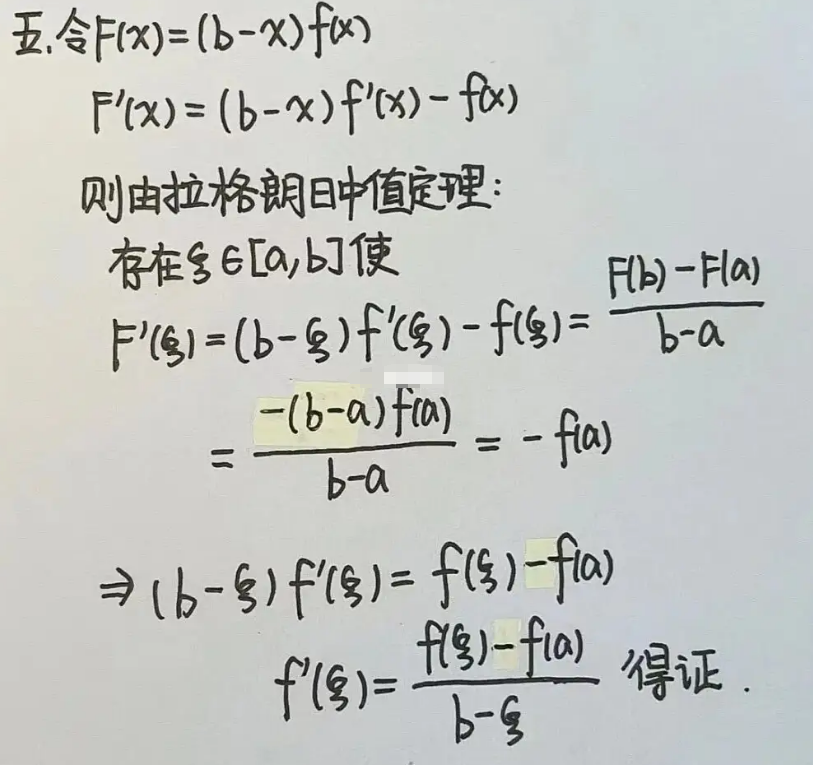 五.令F(x)=(b-x)f(x)
F'(x)=(b-x)f'(x)-f(x)
则由拉格朗日中值定理:
存在ξ∈[a,b]使
F'(ξ)=(b-ξ)f'(ξ)-f(ξ)=\frac{F(b)-F(a)}{b-a}
=\frac{-(b-a)f(a)}{b-a}=-f(a)
⇒(b-ξ)f'(ξ)=f(ξ)-f(a)
f'(ξ)=\frac{f(ξ)-f(a)}{b-ξ} 得证.